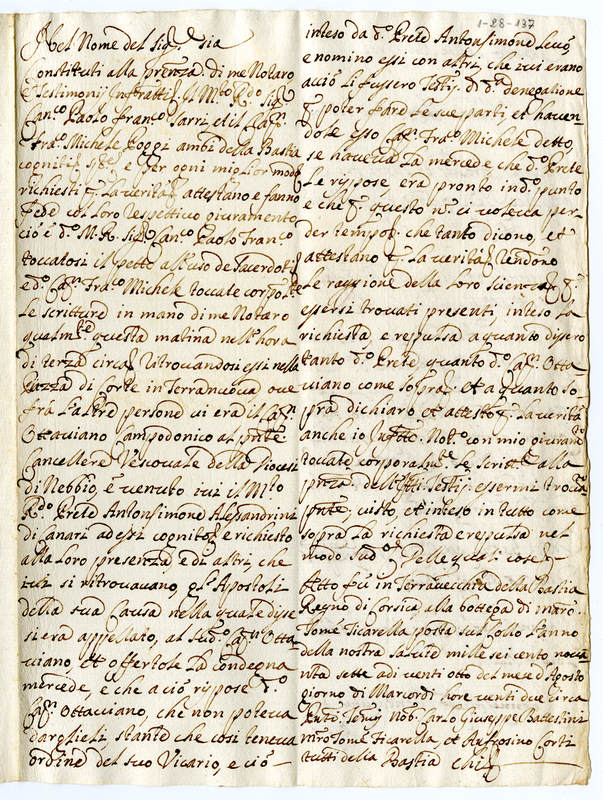 1-28-137
Nel Nome del Sig.re sia
Constituti alla prenza di me Notaro
e Testimonij Infratti il M.to R.do Sig.
Can.co Paolo Fran.co Sarri et il Cap.n
Fra.co Michele Poggi ambi della Bastia
cogniti e per ogni miglior modo
richiesti p. La verità attestano e fanno
fede col Loro respettivo giuramento
cio è d.o M. R. Sig. Can.co Paolo Fran.co
toccatosi il petto all'uso de Sacerdoti
e d.o Cap.n Fra.co Michele toccate corpor.te
Le scritture in mano di me Notaro
qualm.te questa matina nell'hora
di terza circa ritrovandosi essi nella
Piazza di Corte in Terranuova ove
fra l'altre persone vi era il Cap.n
Ottaviano Campodonico al pnte
Cancellere Vescovale della Diocesi
di Nebbio, è venuto ivi il M.to
R.do Prete Antonsimone Alessandrini
di Canari ad essi cognito e richiesto
alla Loro presenza e di altri, che
ivi si ritrovavano, gl'Apostoli
della sua Causa nella quale disse
si era appellato, al Sud.o Cap.n Otta-
viano et offertole La condegna
mercede, e che a ciò rispose d.o
Cap.n Ottaviano, che non poteva
darglieli, stante che così teneva
ordine del suo Vicario, e ciò
inteso da d.o Prete Antonsimone Levò,
e nominò essi con altri che ivi erano
acciò li fussero Testij di d.a denegatione
p. poter fard Le sue parti et haven-
dole esso Cap.n Fra.co Michele detto,
se haveva La mercede che d.o Prete
Le rispose era pronto in d.o punto
e che p. questo n. ci voleva per-
der tempo che tanto dicono, et
attestano p. La verità Rendono
Le raggione della Loro scienza p.
essersi trovati presenti, inteso La
richiesta, e repulsa a quanto dissero
tanto d.o Prete quanto d.o Cap.n Otta
viano come sopra et a quanto so-
pra dichiaro et attesto p. La verità
anche io Not.o con mio giuram.to
toccate corporalm.te Le Scritt.e alla
pnza dell' Testij essermi trovato
pnte, visto et inteso in tutto come
sopra La richiesta e repulsa nel
modo Sud.o Delle quali cose
Atto fu in Terravecchia della Bastia
Regno di Corsica alla bottega di mro
Tomè Ficarella posta sul Collo L'anno
della nostra salute mille sei cento nova
nta sette a di venti otto del mese d'Agosto
giorno di Marcordi hore venti due circa
Pnti Tomij Nob. Carlo Giuseppe Battestini
mro Tomè Ficarella, et Anfrosino Corti
tutti della Bastia